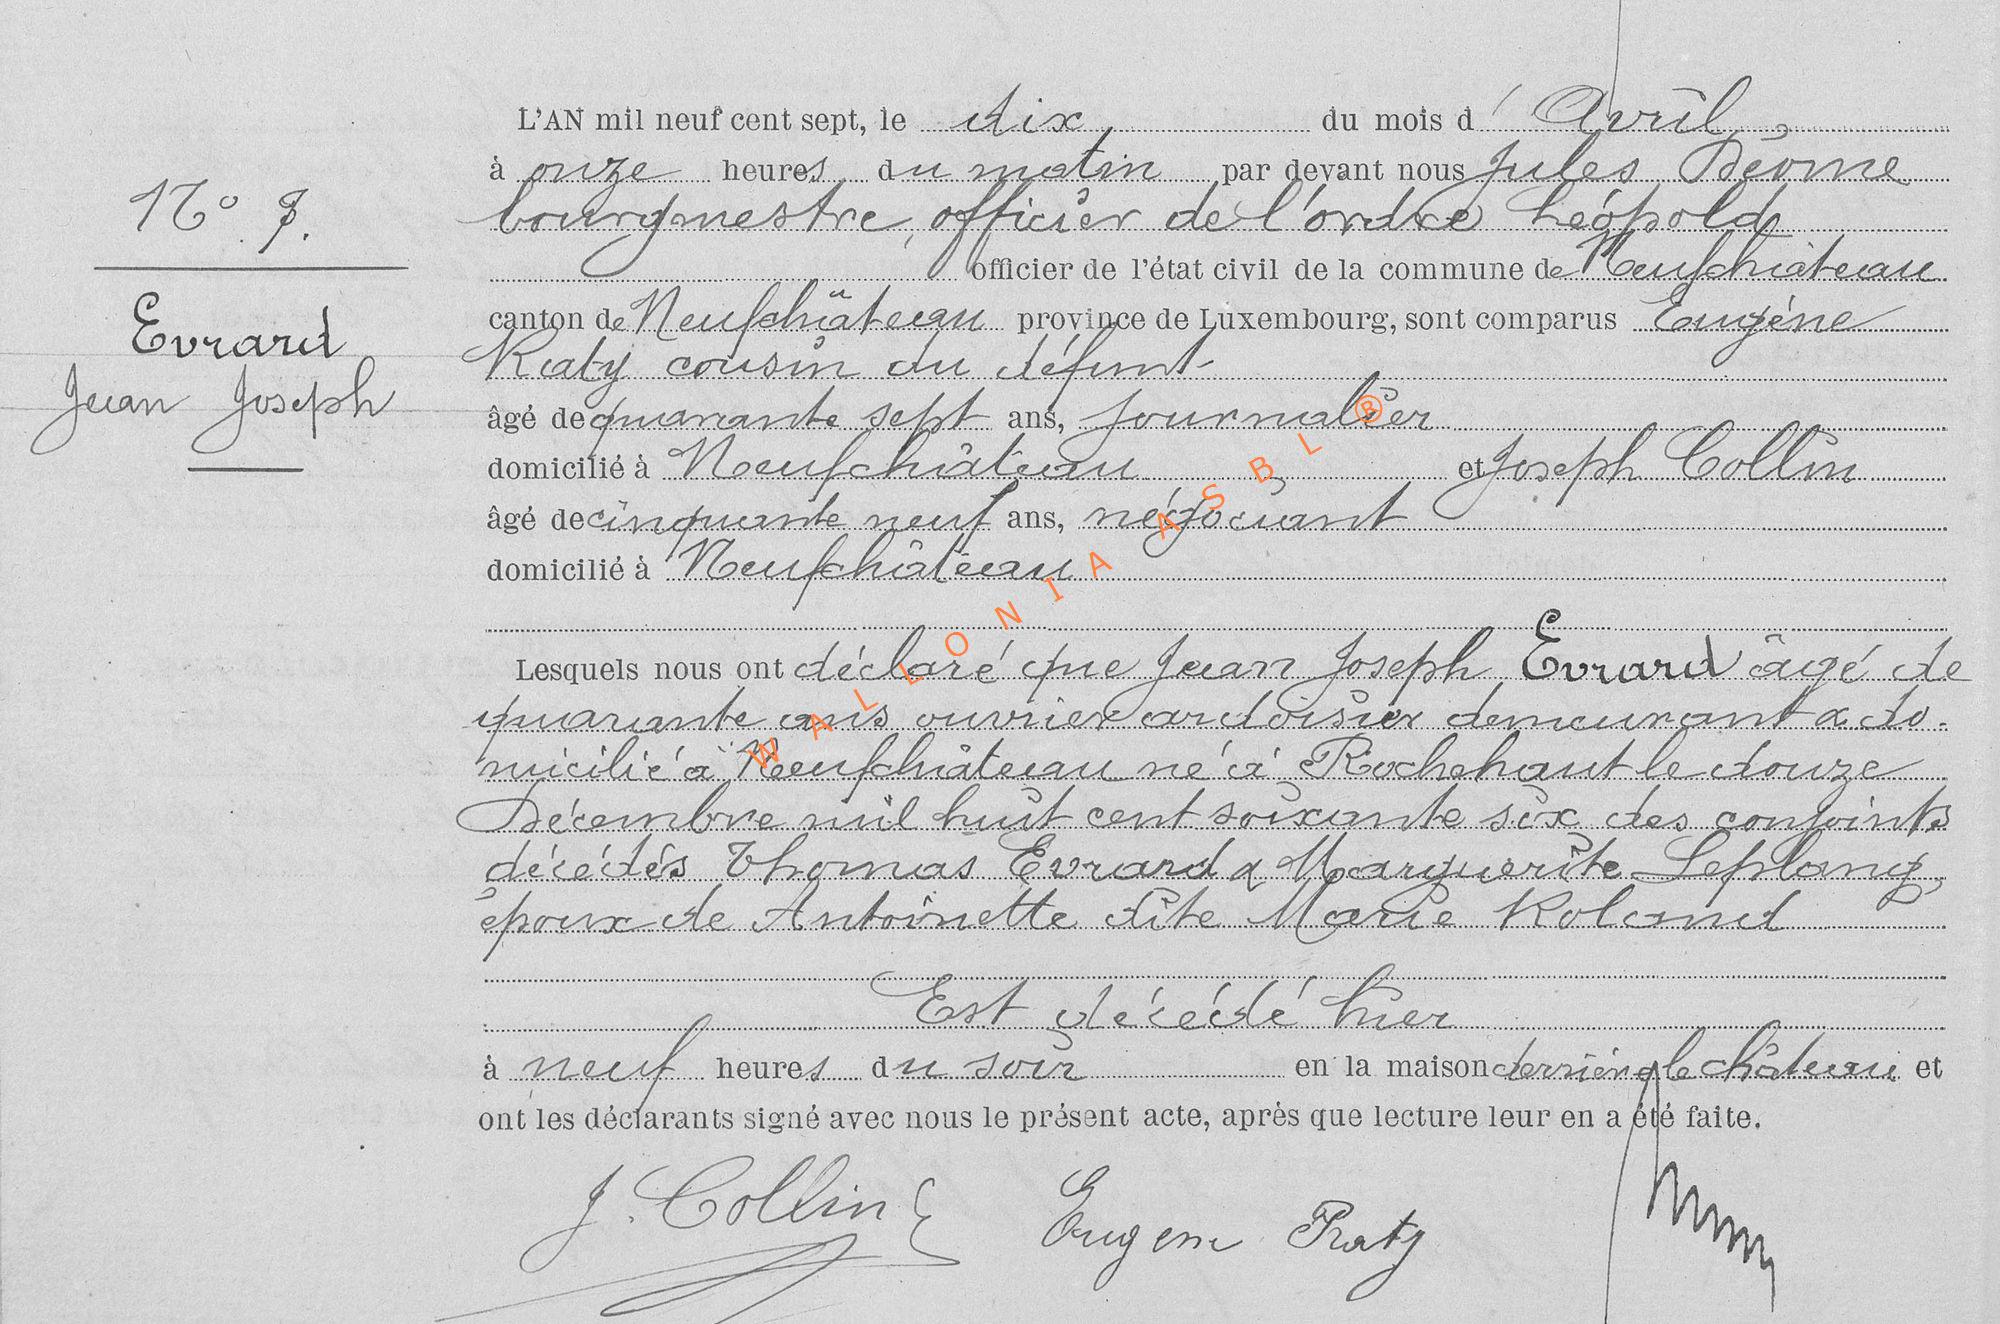 L'AN mil neuf cent sept, le dix du mois d' Avril,
à onze heures du matin par devant nous Jules
bourgmestre, officier de l'ordre Léopold
officier de l'état civil de la commune de Neufchâteau
N°
canton de Neufchâteau province de Luxembourg, sont comparus Eugène
Evrard
Raty cousin du défunt
Jean Joseph
âgé de quarante sept ans, journalier
domicilié à Neufchâteau et Joseph Collin
âgé de cinquante neuf ans, négociant
domicilié à Neufchâteau
Lesquels nous ont déclaré que Jean Joseph Evrard âgé de
quarante ans ouvrier ardoisier demeurant & do-
micilié à Neufchâteau né à Rochehaut le douze
Décembre mil huit cent soixante six des conjoints
décédés Thomas Evrard & Marguerite Leplang,
époux de Antoinette dite Marie Roland
Est décédé hier
à neuf heures du soir en la maison derrière le château et
ont les déclarants signé avec nous le présent acte, après que lecture leur en a été faite.
J. Collin Eugene Raty
WALLONIA ASBL ®